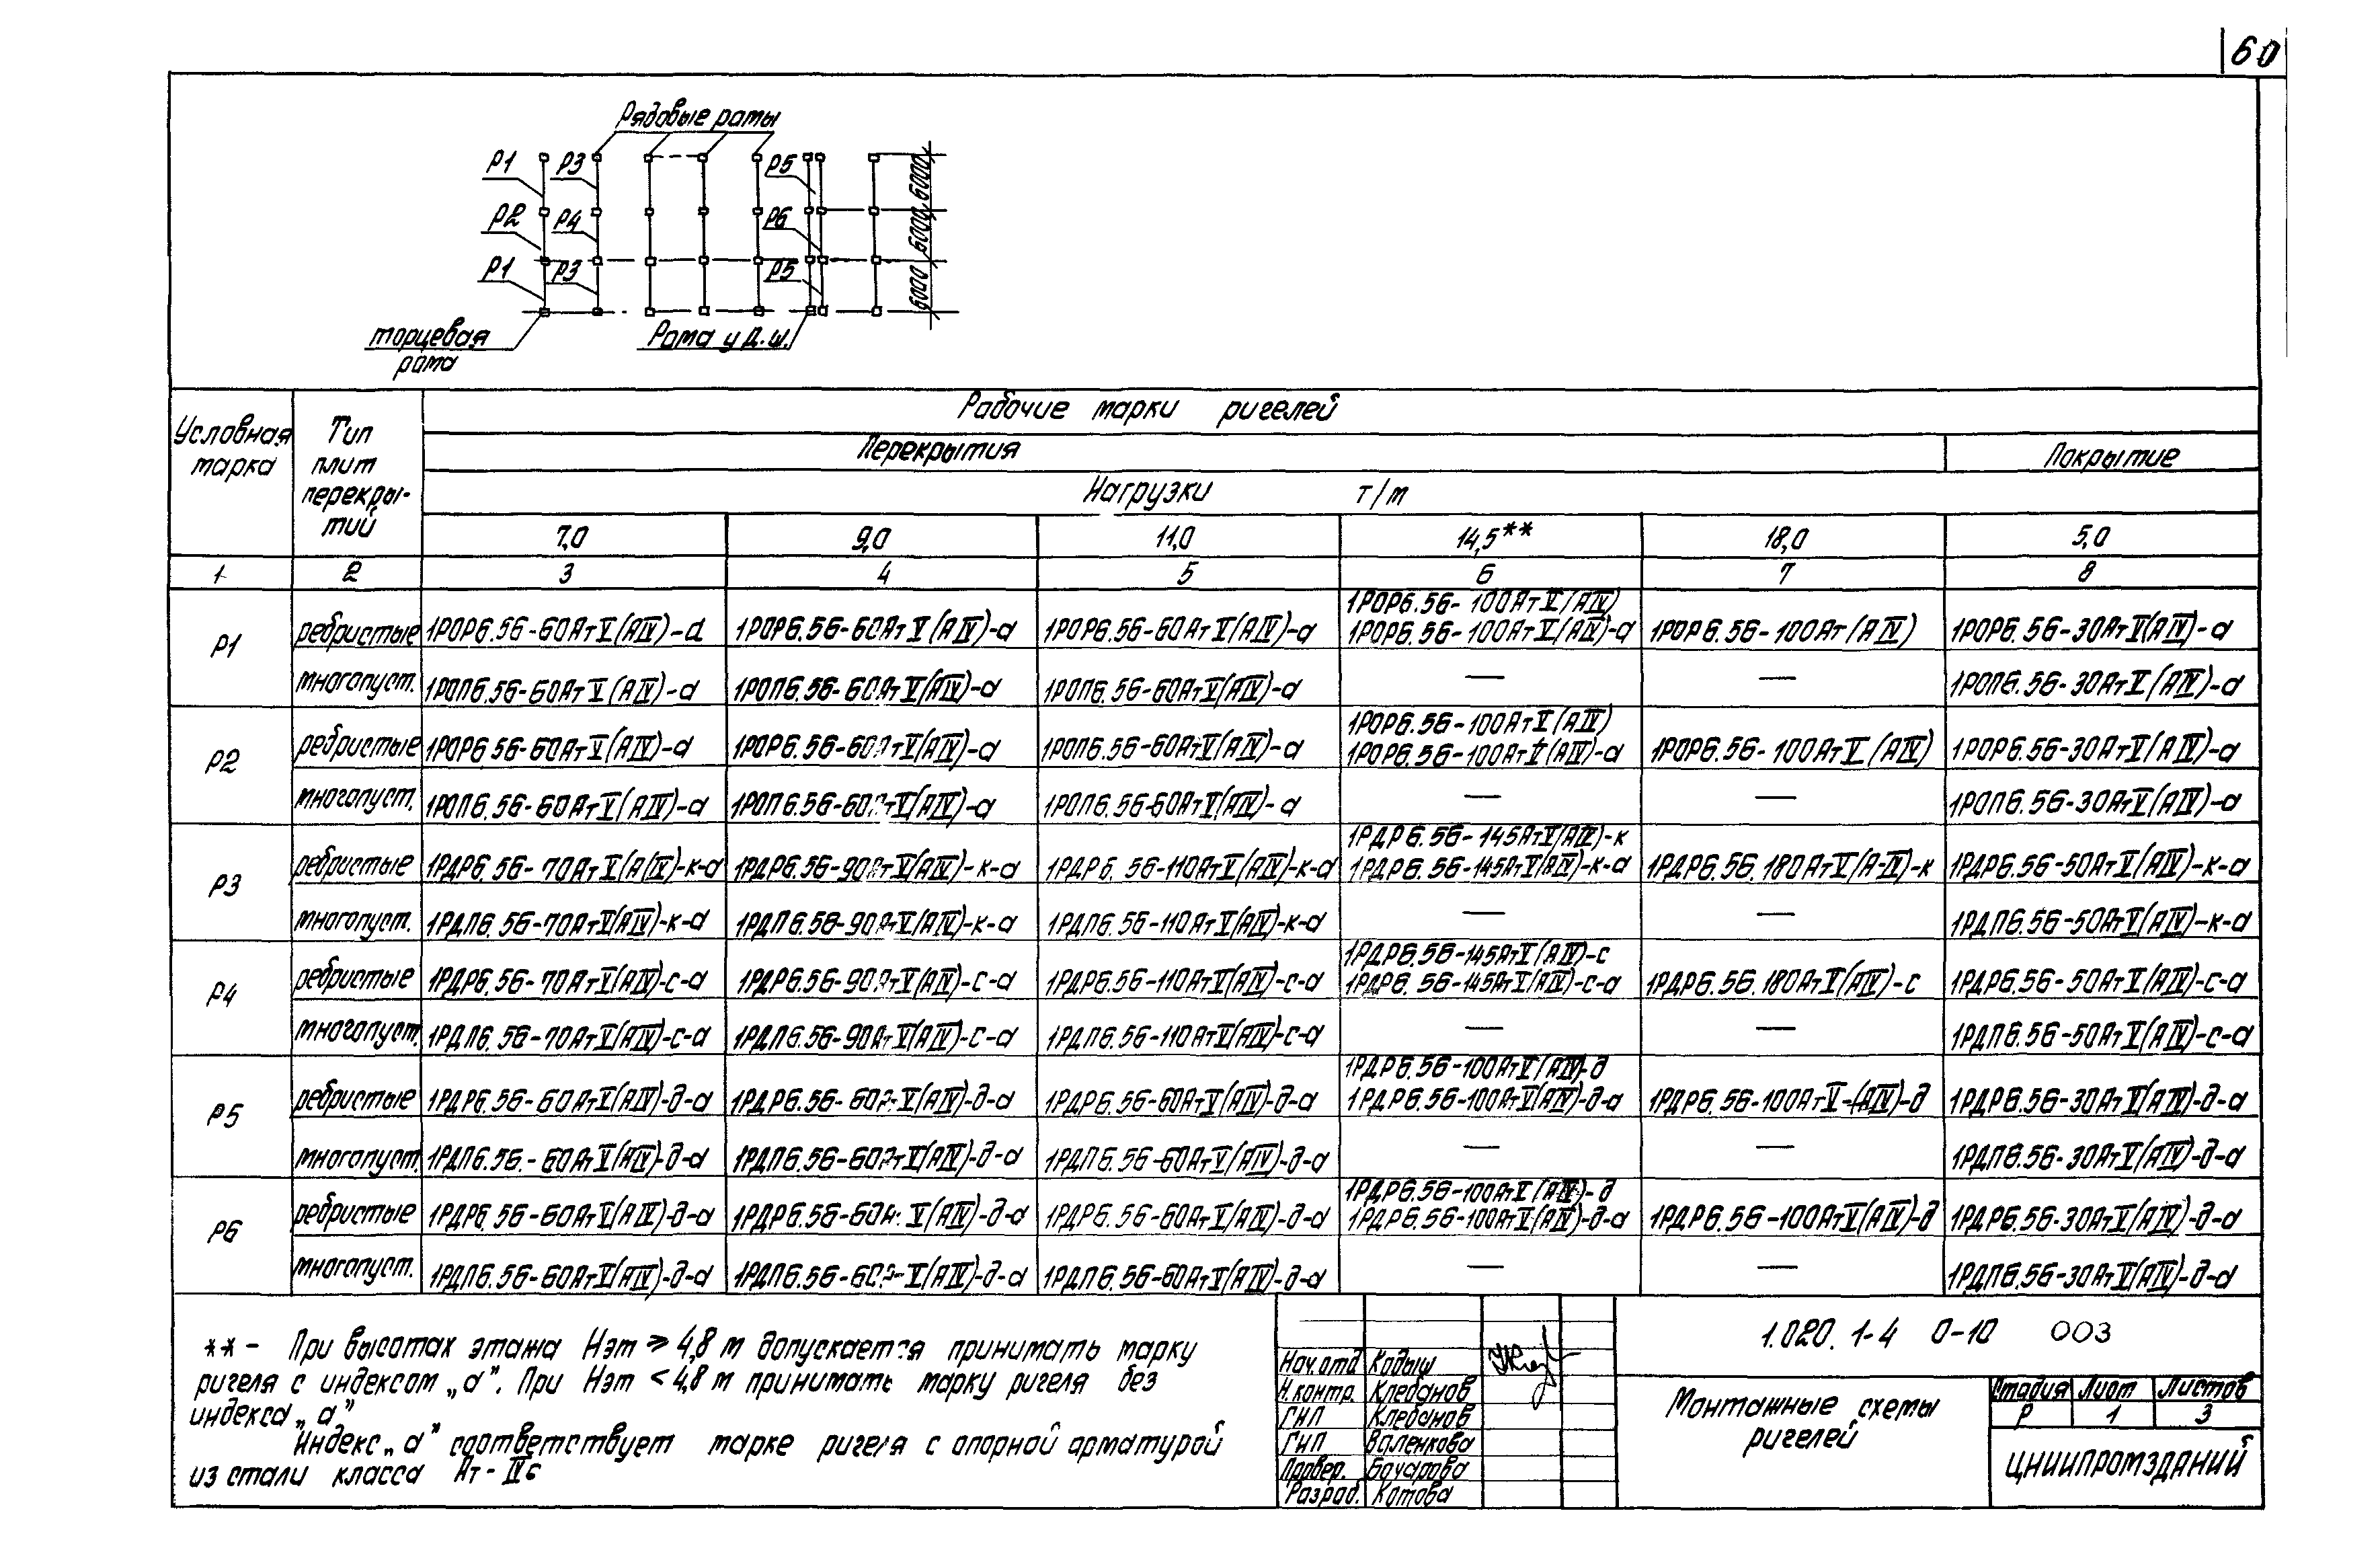 60
Рядовые рамы
Р1 Р3 Р5
Р2 Р4 Р6
Р1 Р3 Р5
6000 6000 6000
торцевая рама
Рама у д.ш.
Условная марка
Тип плит перекры-
тий
Рабочие марки ригелей
Перекрытия Покрытие
Нагрузки т/м
7,0 9,0 11,0 14,5** 18,0 5,0
1 2 3 4 5 6 7 8
Р1 ребристые 1РОР6.56-60АтV(АIV)-а 1РОР6.56-60АтV(АIV)-а 1РОР6.56-60АтV(АIV)-а 1РОР6.56-100АтV(АIV) 1РОР6.56-100АтV(АIV)-а 1РОР6.56-100Ат(АIV) 1РОР6.56-30АтV(АIV)-а
многопуст. 1РОП6.56-60АтV(АIV)-а 1РОП6.56-60АтV(АIV)-а 1РОП6.56-60АтV(АIV)-а — — 1РОП6.56-30АтV(АIV)-а
Р2 ребристые 1РОР6.56-60АтV(АIV)-а 1РОР6.56-60АтV(АIV)-а 1РОП6.56-60АтV(АIV)-а 1РОР6.56-100АтV(АIV) 1РОР6.56-100АтV(АIV)-а 1РОР6.56-100АтV(АIV) 1РОР6.56-30АтV(АIV)-а
многопуст. 1РОП6.56-60АтV(АIV)-а 1РОП6.56-60АтV(АIV)-а 1РОП6.56-60АтV(АIV)-а — — 1РОП6.56-30АтV(АIV)-а
Р3 ребристые 1РДР6.56-70АтV(АIV)-к-а 1РДР6.56-90АтV(АIV)-к-а 1РДР6.56-110АтV(АIV)-к-а 1РДР6.56-145АтV(АIV)-к 1РДР6.56-145АтV(АIV)-к-а 1РДР6.56.180АтV(А-IV)-к 1РДР6.56-50АтV(АIV)-к-а
многопуст. 1РДП6.56-70АтV(АIV)-к-а 1РДП6.56-90АтV(АIV)-к-а 1РДП6.56-110АтV(АIV)-к-а — — 1РДП6.56-50АтV(АIV)-к-а
Р4 ребристые 1РДР6.56-70АтV(АIV)-с-а 1РДР6.56-90АтV(АIV)-с-а 1РДР6.56-110АтV(АIV)-с-а 1РДР6.56-145АтV(АIV)-с 1РДР6.56-145АтV(АIV)-с-а 1РДР6.56.180АтV(АIV)-с 1РДР6.56-50АтV(АIV)-с-а
многопуст. 1РДП6.56-70АтV(АIV)-с-а 1РДП6.56-90АтV(АIV)-с-а 1РДП6.56-110АтV(АIV)-с-а — — 1РДП6.56-50АтV(АIV)-с-а
Р5 ребристые 1РДР6.56-60АтV(АIV)-д-а 1РДР6.56-60АтV(АIV)-д-а 1РДР6.56-60АтV(АIV)-д-а 1РДР6.56-100АтV(АIV)-д 1РДР6.56-100АтV(АIV)-д-а 1РДР6.56-100АтV-(АIV)-д 1РДР6.56-30АтV(АIV)-д-а
многопуст. 1РДП6.56.-60АтV(АIV)-д-а 1РДП6.56-60АтV(АIV)-д-а 1РДП6.56-60АтV(АIV)-д-а — — 1РДП6.56-30АтV(АIV)-д-а
Р6 ребристые 1РДР6.56-60АтV(АIV)-д-а 1РДР6.56-60АтV(АIV)-д-а 1РДР6.56-60АтV(АIV)-д-а 1РДР6.56-100АтV(АIV)-д 1РДР6.56-100АтV(АIV)-д-а 1РДР6.56-100АтV(АIV)-д 1РДР6.56-30АтV(АIV)-д-а
многопуст. 1РДП6.56-60АтV(АIV)-д-а 1РДП6.56-60АтV(АIV)-д-а 1РДП6.56-60АтV(АIV)-д-а — — 1РДП6.56-30АтV(АIV)-д-а
**- При высотах этажа Нэт ⩾ 4,8 м допускается принимать марку
ригеля с индексом „а”. При Нэт < 4,8 м принимать марку ригеля без
индекса „а”
Индекс „а” соответствует марке ригеля с опорной арматурой
из стали класса Ат-IVс
Нач.отд Кодыш
Н.контр. Клебанов
ГИП Клебанов
ГИП Валенкова
Провер. Бочарова
Разраб. Котова
1.020.1-4 0-10 003
Монтажные схемы
ригелей
Стадия Лист Листов
Р 1 3
ЦНИИПРОМЗДАНИЙ